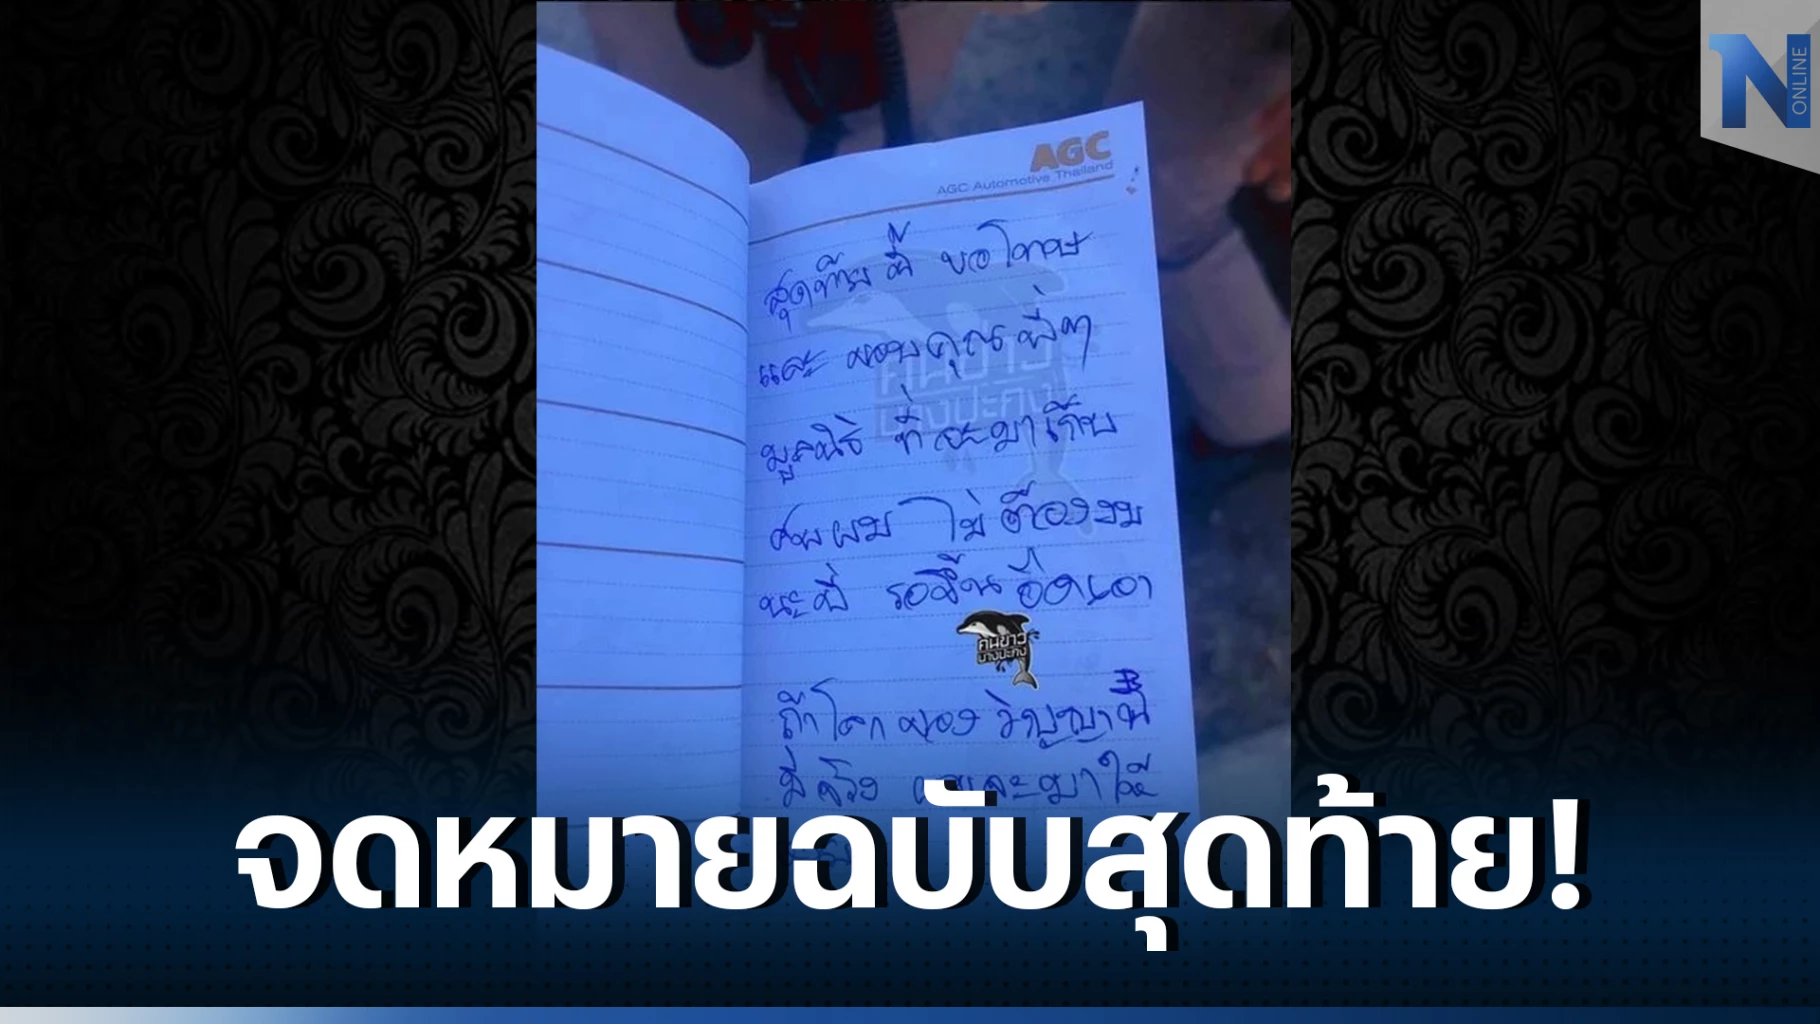 N ONLINE
AGC
AGC Automotive Thailand
สุดท้ายนี้ ขอโทษ
และ ขอบคุณ พี่ๆ
มูลนิธิ ที่จะมาเก็บ
ศพผม ไม่ต้องงม
นะพี่ รอขึ้นอืดเอา
คนข่าว
บางปะกง
ถ้าโลกของวิญญาณ
มีจริง ผมจะมาให้
จดหมายฉบับสุดท้าย!